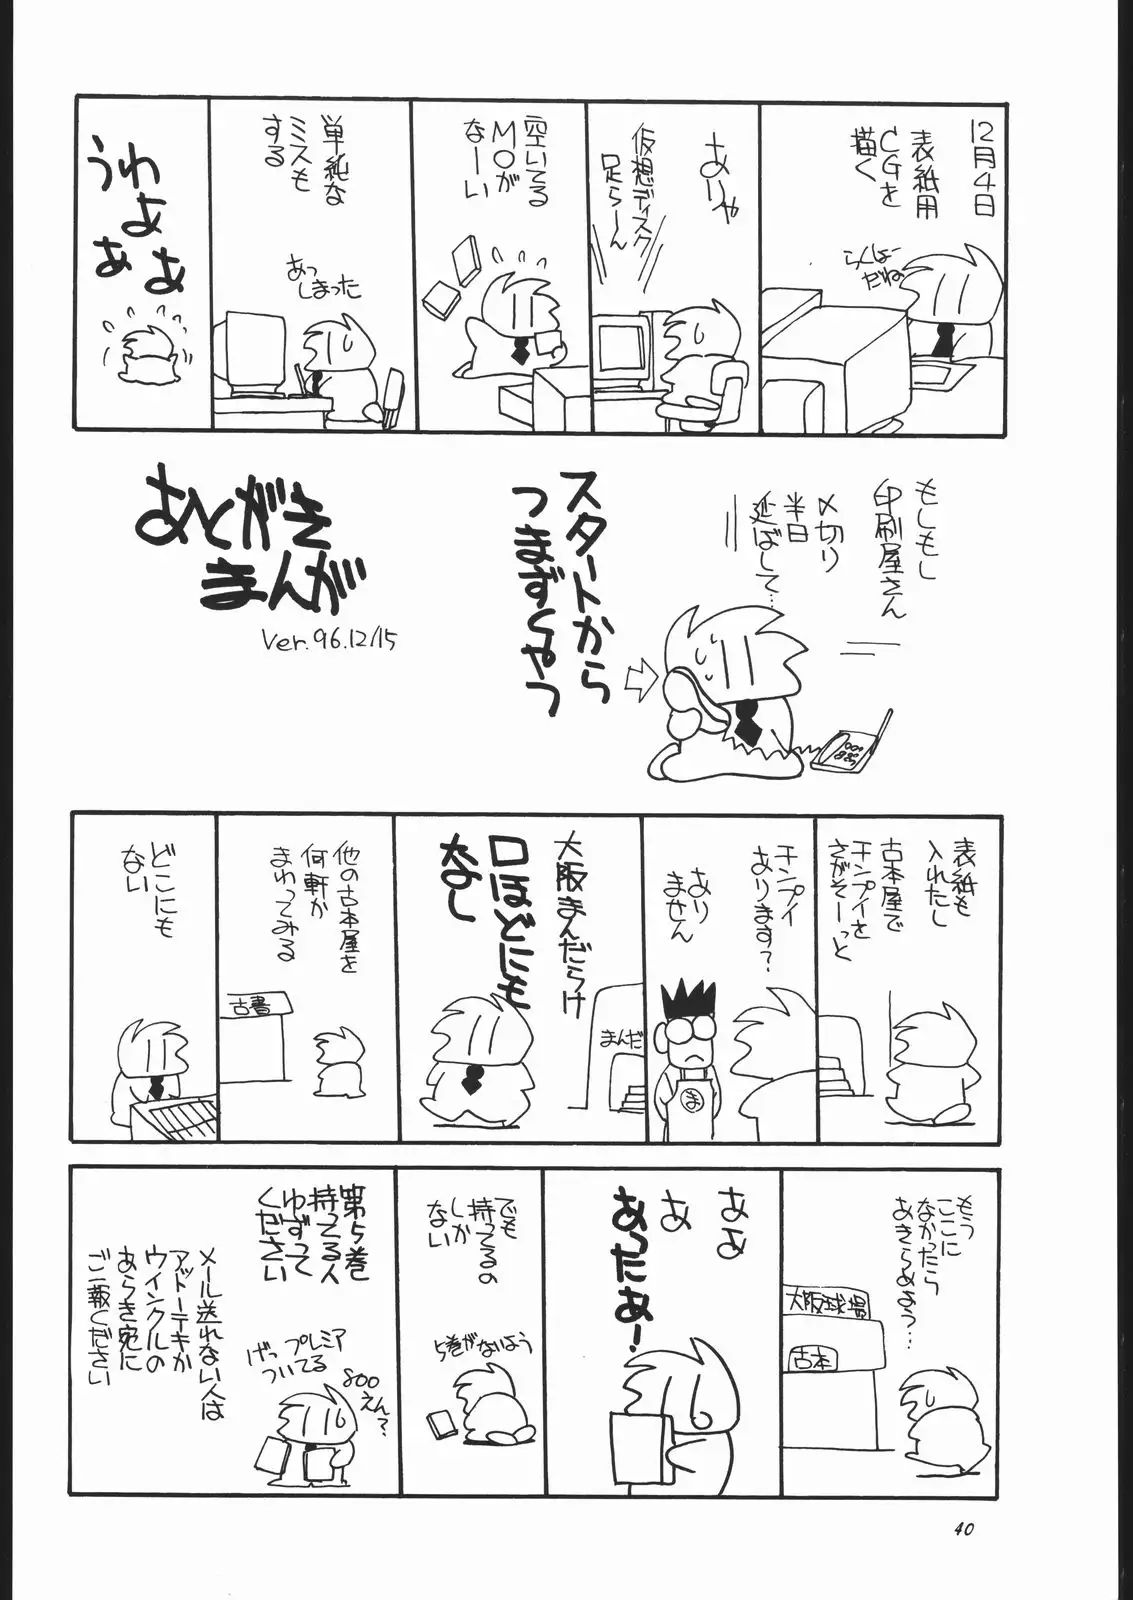 12月4日
表紙用
CGを
描く
らくしょー
だね
ありゃ
仮想ディスク
足らーん
空いてる
MOが
なーい
単純な
ミスも
する
あっ
しまった
うわぁぁぁ
もしもし
印刷屋さん
〆切り
半日
延ばして…
スタートから
つまずくやつ
あとがき
まんが
Ver.96.12/15
表紙も
入れたし
古本屋で
チンプイを
さがそーっと
チンプイ
あります?
あり
ません
ま
大阪まんだらけ
口ほどにも
なし
まんだ
他の古本屋を
何軒か
まわってみる
古書
どこにも
ない
もう
ここに
なかったら
あきらめよう…
大阪球場
古本
あぁ
あ
あったぁ!
でも
持ってるの
しか
ない
5巻がないよう
第5巻
持ってる人
ゆずって
ください
800
えん?
げっ プレミア
ついてる
メール送れない人は
アットーテキか
ウインクルの
あらき宛に
ご一報ください
40